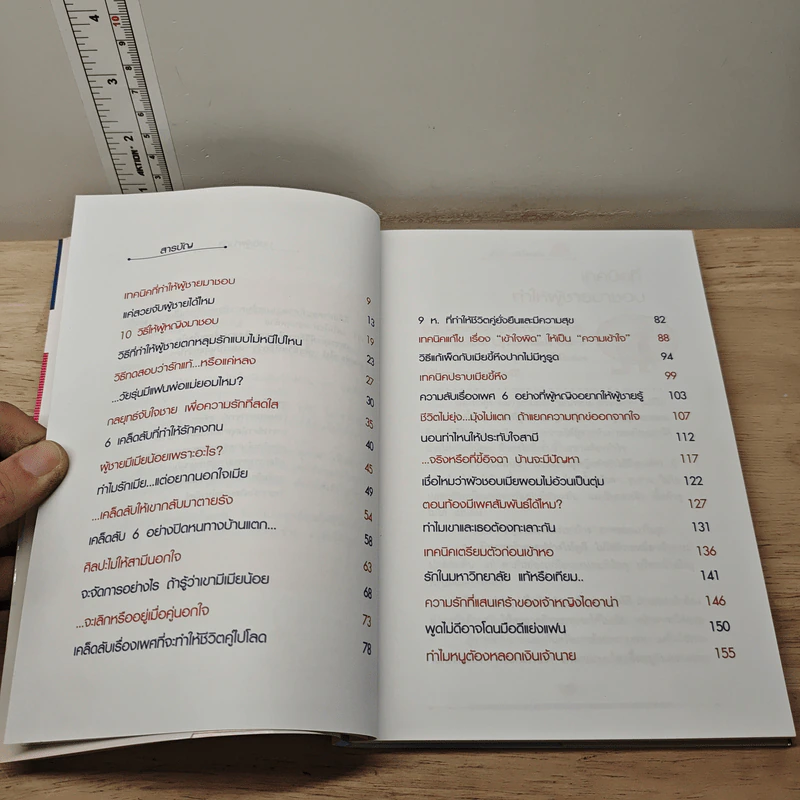 สารบัญ
เทคนิคที่ทำให้ผู้ชายมาชอบ 9
แค่สวยจับผู้ชายได้ไหม 13
10 วิธีให้ผู้หญิงมาชอบ 19
วิธีที่ทำให้ผู้ชายตกหลุมรักแบบไม่หนีไปไหน 23
วิธีทดสอบว่ารักแท้...หรือแค่หลง 27
...วัยรุ่นมีแฟนพ่อแม่ยอมไหม? 30
กลยุทธ์จับใจชาย เพื่อความรักที่สดใส 35
6 เคล็ดลับที่ทำให้รักคงทน 40
ผู้ชายมีเมียน้อยเพราะอะไร? 45
ทำไมรักเมีย...แต่อยากนอกใจเมีย 49
...เคล็ดลับให้เขากลับมาตายรัง 54
เคล็ดลับ 6 อย่างปิดหนทางบ้านแตก... 58
ศิลปะไม่ให้สามีนอกใจ 63
จะจัดการอย่างไร ถ้ารู้ว่าเขามีเมียน้อย 68
...จะเลิกหรืออยู่เมื่อคู่นอกใจ 73
เคล็ดลับเรื่องเพศที่จะทำให้ชีวิตคู่ไปโลด 78
9 ห. ที่ทำให้ชีวิตคู่ยั่งยืนและมีความสุข 82
เทคนิคแก้ไข เรื่อง "เข้าใจผิด" ให้เป็น "ความเข้าใจ" 88
วิธีแก้เผ็ดกับเมียขี้หึงปากไม่มีหูรูด 94
เทคนิคปราบเมียขี้หึง 99
ความลับเรื่องเพศ 6 อย่างที่ผู้หญิงอยากให้ผู้ชายรู้ 103
ชีวิตไม่ยุ่ง...มุ้งไม่แตก ถ้าแยกความทุกข์ออกจากใจ 107
นอนท่าไหนให้ประทับใจสามี 112
...จริงหรือที่ขี้อิจฉา บ้านจะมีปัญหา 117
เชื่อไหมว่าผัวชอบเมียผอมไม่อ้วนเป็นตุ่ม 122
ตอนท้องมีเพศสัมพันธ์ได้ไหม? 127
ทำไมเขาและเธอต้องทะเลาะกัน 131
เทคนิคเตรียมตัวก่อนเข้าหอ 136
รักในมหาวิทยาลัย แท้หรือเทียม.. 141
ความรักที่แสนเศร้าของเจ้าหญิงไดอาน่า 146
พูดไม่ดีอาจโดนมือดีแย่งแฟน 150
ทำไมหนูต้องหลอกเงินเจ้านาย 155